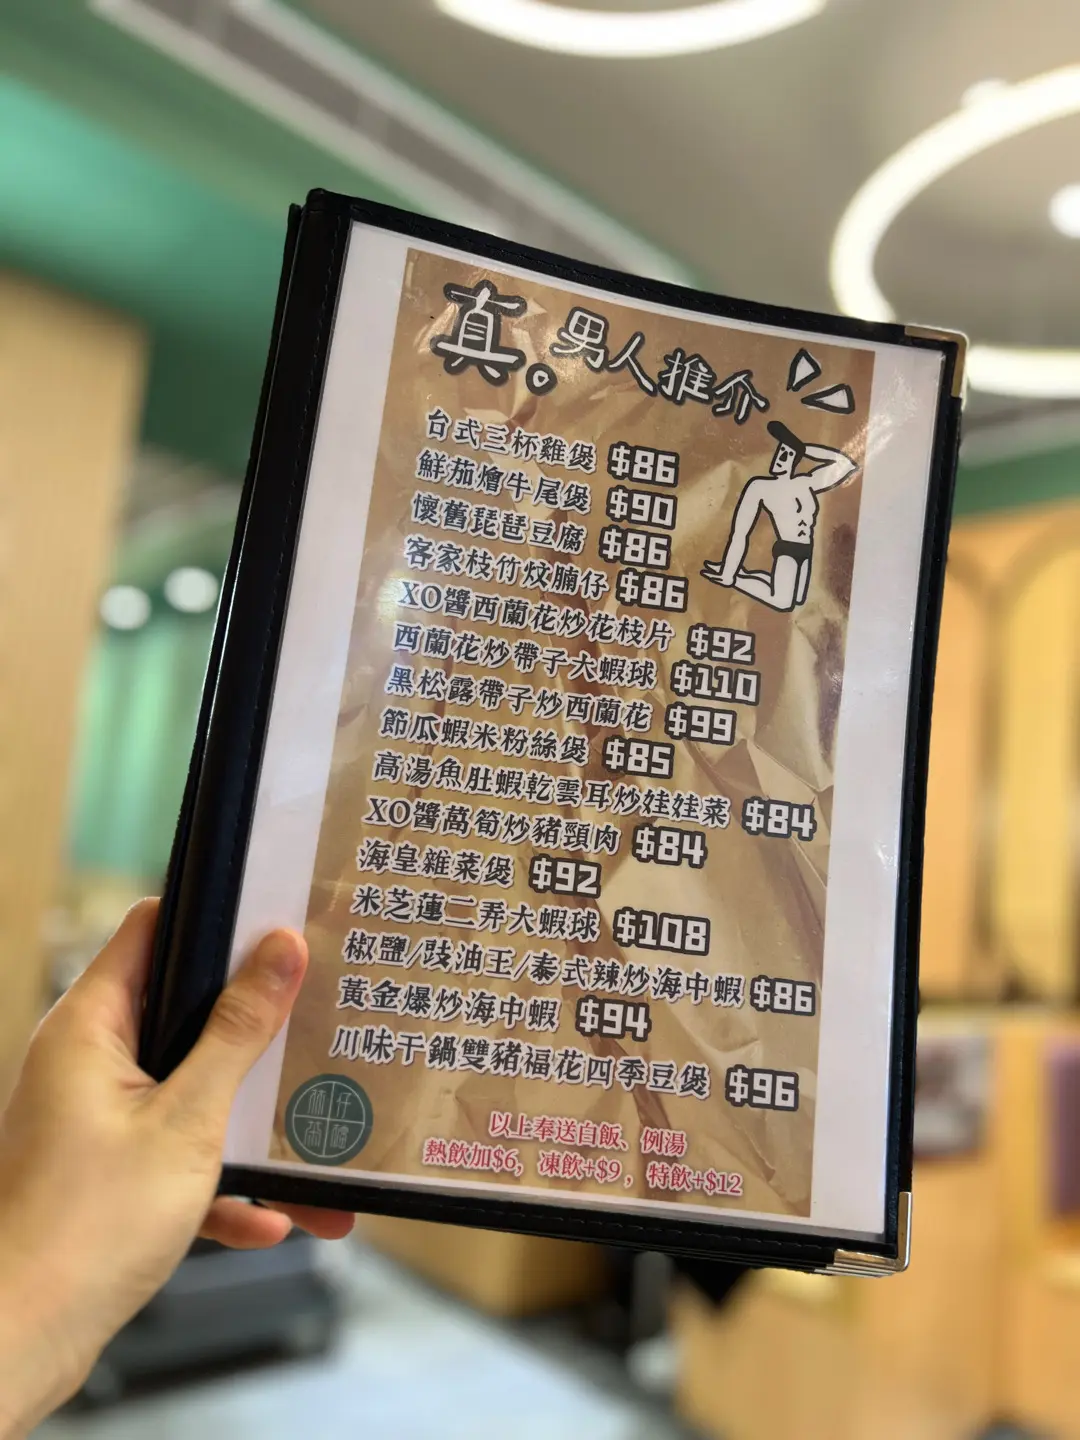 真。男人推介
台式三杯雞煲 $86
鮮茄燴牛尾煲 $90
懷舊琵琶豆腐 $86
客家枝竹炆腩仔 $86
XO醬西蘭花炒花枝片 $92
西蘭花炒帶子大蝦球 $110
黑松露帶子炒西蘭花 $99
節瓜蝦米粉絲煲 $85
高湯魚肚蝦乾雲耳炒娃娃菜 $84
XO醬萵筍炒豬頸肉 $84
海皇雜菜煲 $92
米芝蓮二弄大蝦球 $108
椒鹽/豉油王/泰式辣炒海中蝦 $86
黃金爆炒海中蝦 $94
川味干鍋雙豬福花四季豆煲 $96
以上奉送白飯、例湯
熱飲加$6, 凍飲+$9, 特飲+$12